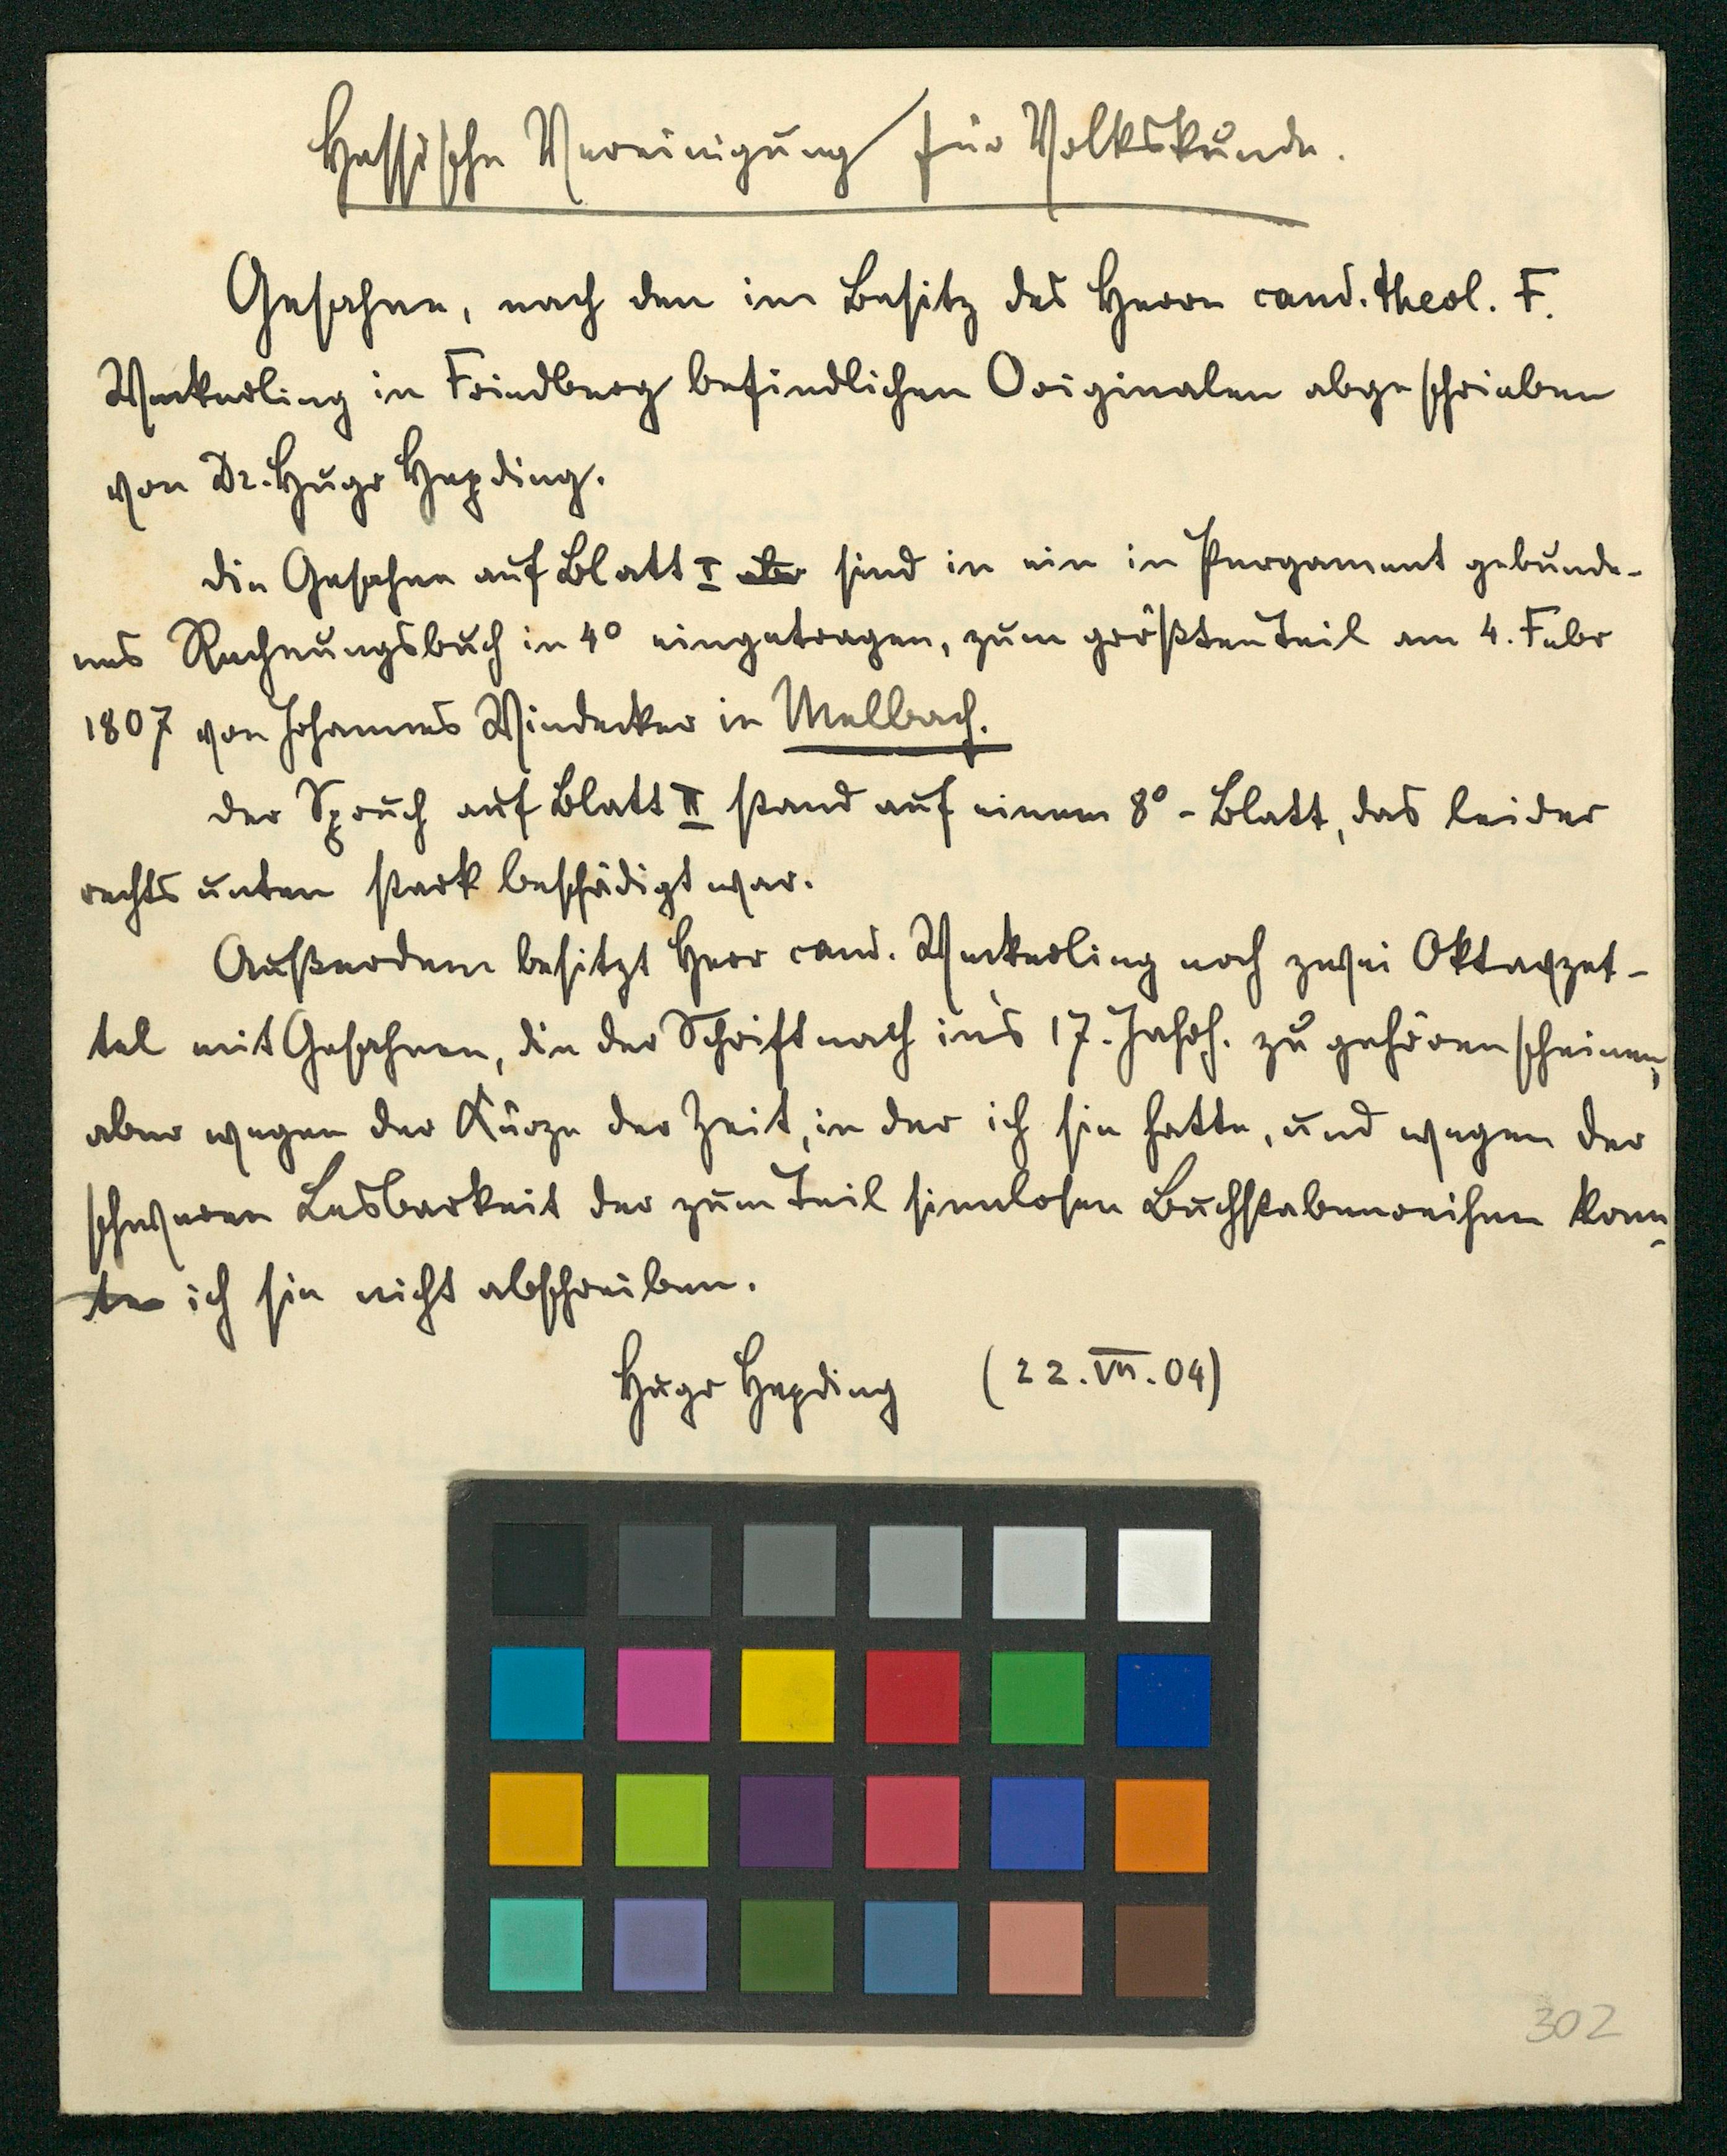 Hessische Vereinigung für Volkskunde.
nach den im Besitz des Herrn cand. theol. F.
Weckerling in Friedberg befindlichen Originalen abgeschrieben
von Dr. Hugo Hepding.
Die auf Blatt I sind in ein in Pergament gebunde-
nes Rechnungsbuch in 4° eingetragen, zum größten Teil am 4. Febr
1807 von Johannes Windecker in Melbach.
Der Spruch auf Blatt II stand auf einem 8°-Blatt, das leider
rechts unten stark beschädigt war.
Außerdem besitzt Herr cand. Weckerling noch zwei Oktavzet-
tel mit die der Schrift nach in's 17. Jahrh. zu gehören scheinen,
aber wegen der Kürze der Zeit, in der ich sie hatte, und wegen der
schweren Lesbarkeit der zum Teil sinnlosen Buchstabenreihen konn-
te ich sie nicht abschreiben.
Hugo Hepding (22.VII.04)
302